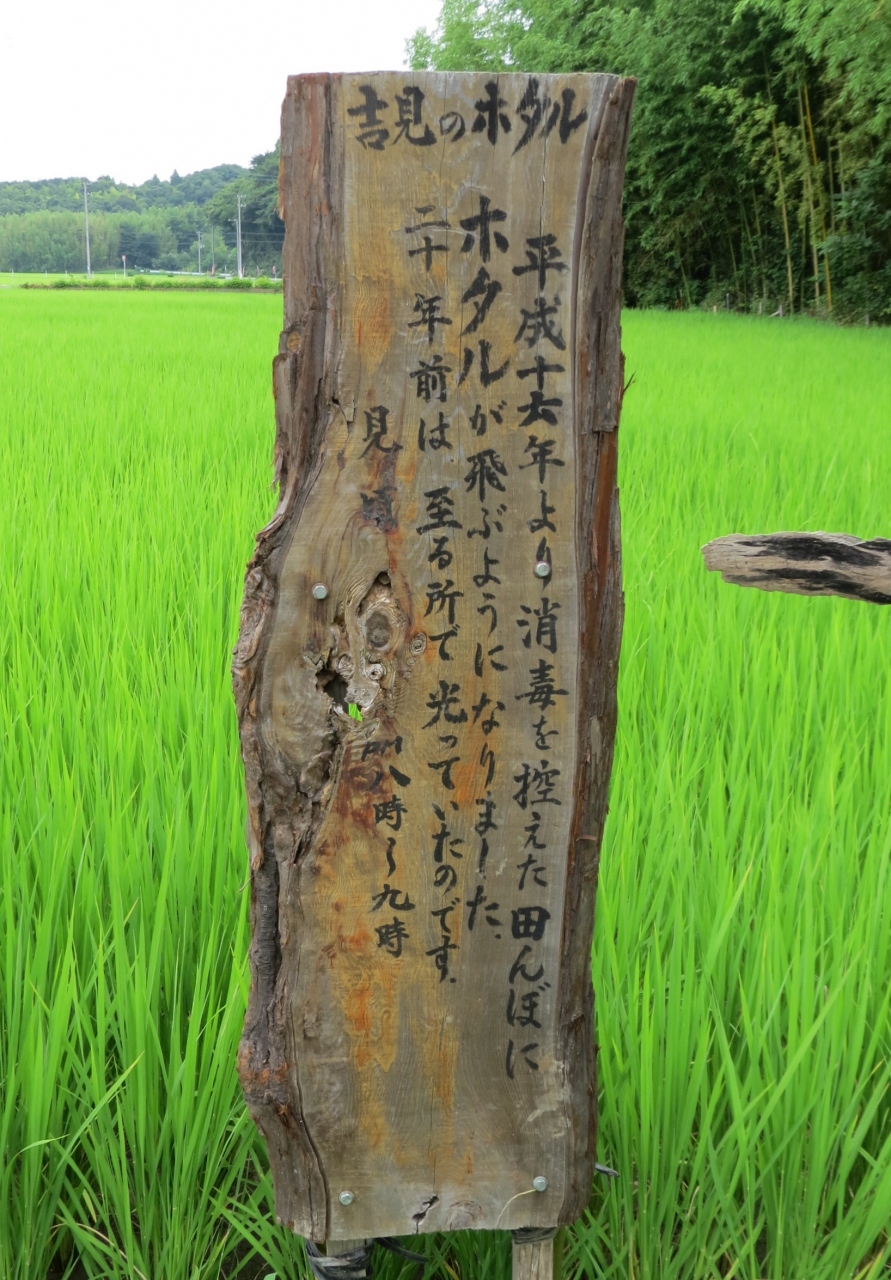 吉見のホタル
平成十六年より消毒を控えた田んぼに
ホタルが飛ぶようになりました.
二十年前は.至る所で光っていたのです.
見頃 PM八時〜九時